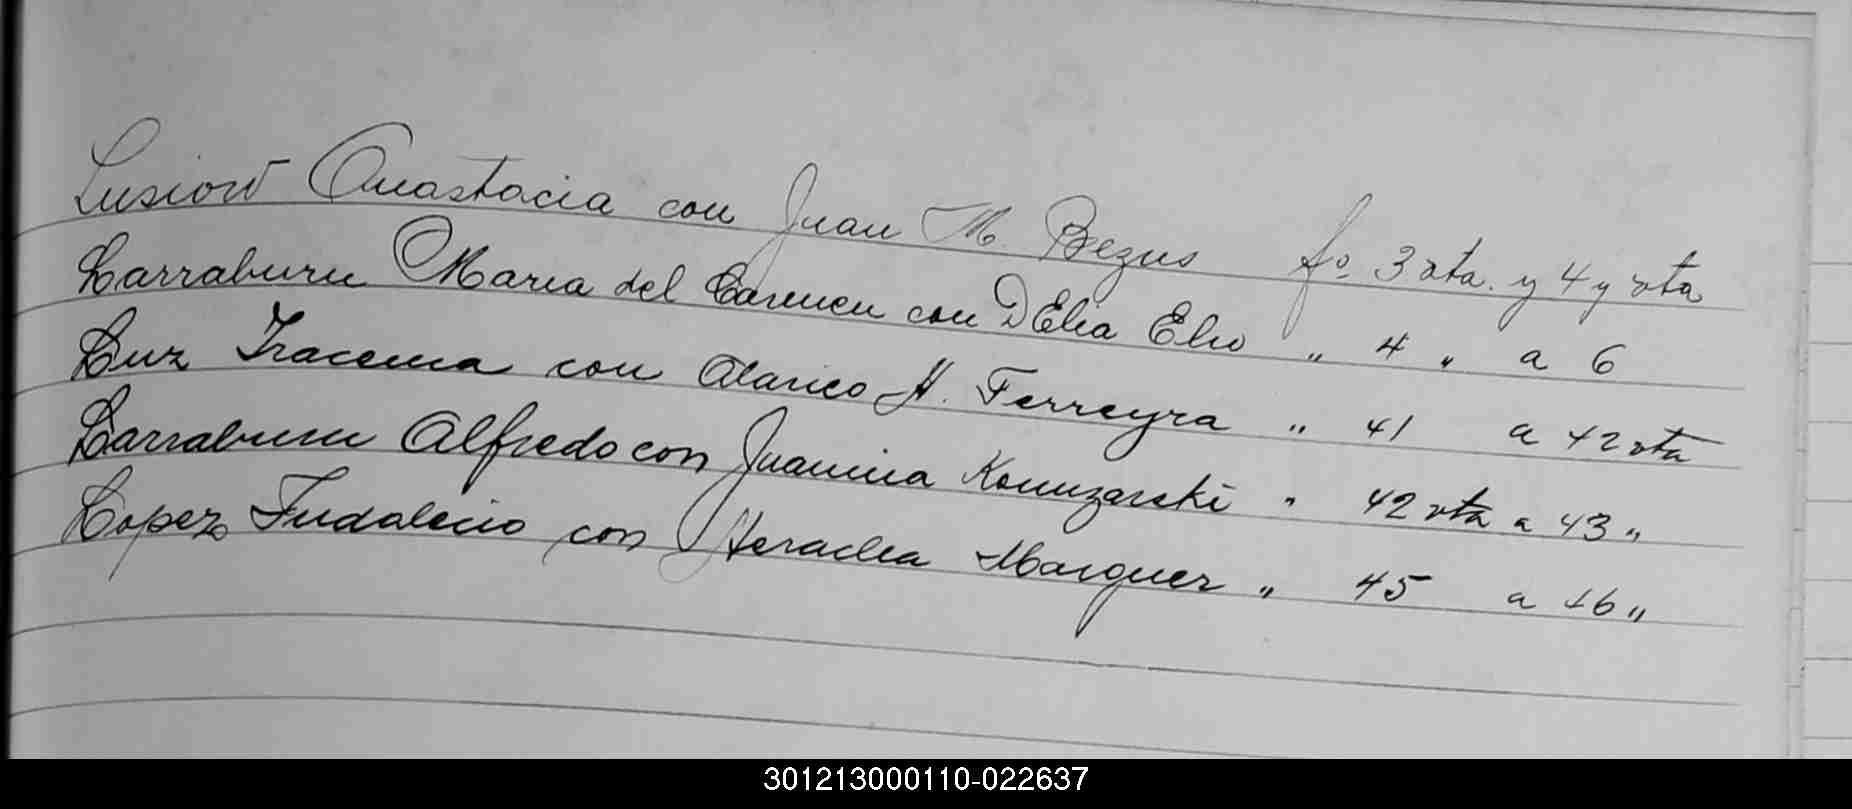 Lusiow Anastacia con Juan M. Bezus fo. 3 vta. y 4 y vta
Larraburu Maria del Carmen con D Elia Elio " 4 " a 6
Luz Iracema con Alarico A. Ferreyra " 41 a 42 vta
Larraburu Alfredo con Juanina " 42 vta a 43 "
Lopez Indalecio con Heraclea Marquez " 45 a 46 "
301213000110-022637